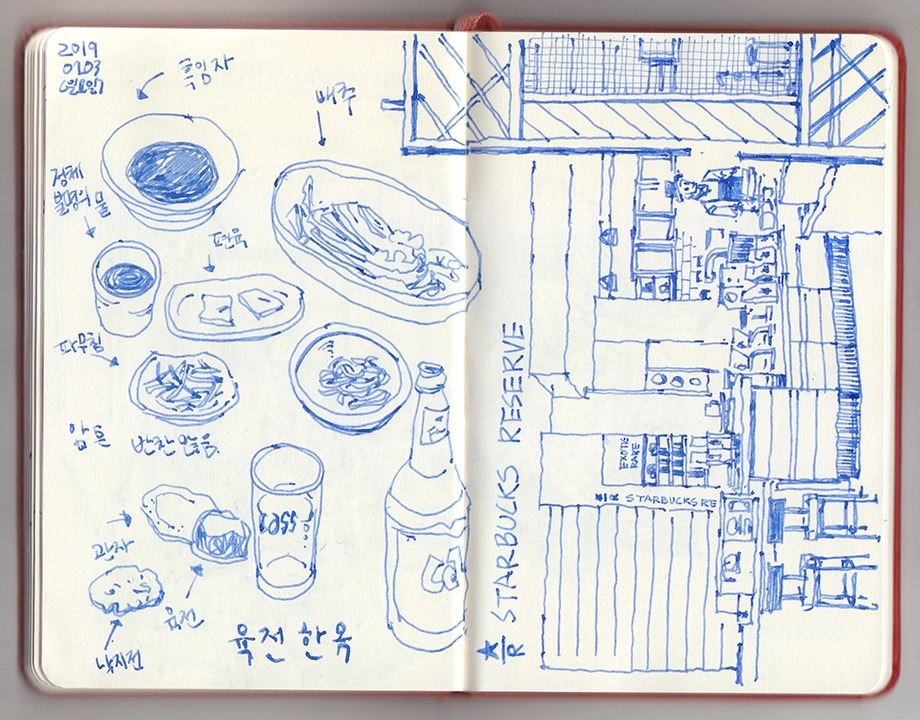 2019
0103
흑임자
배추
정체
불명의 물
편육
파무침
암튼 반찬 많음
관자
육전
낙지전
육전 한옥
R STARBUCKS RESERVE
EXOTIC
RARE
R STARBUCKS RE